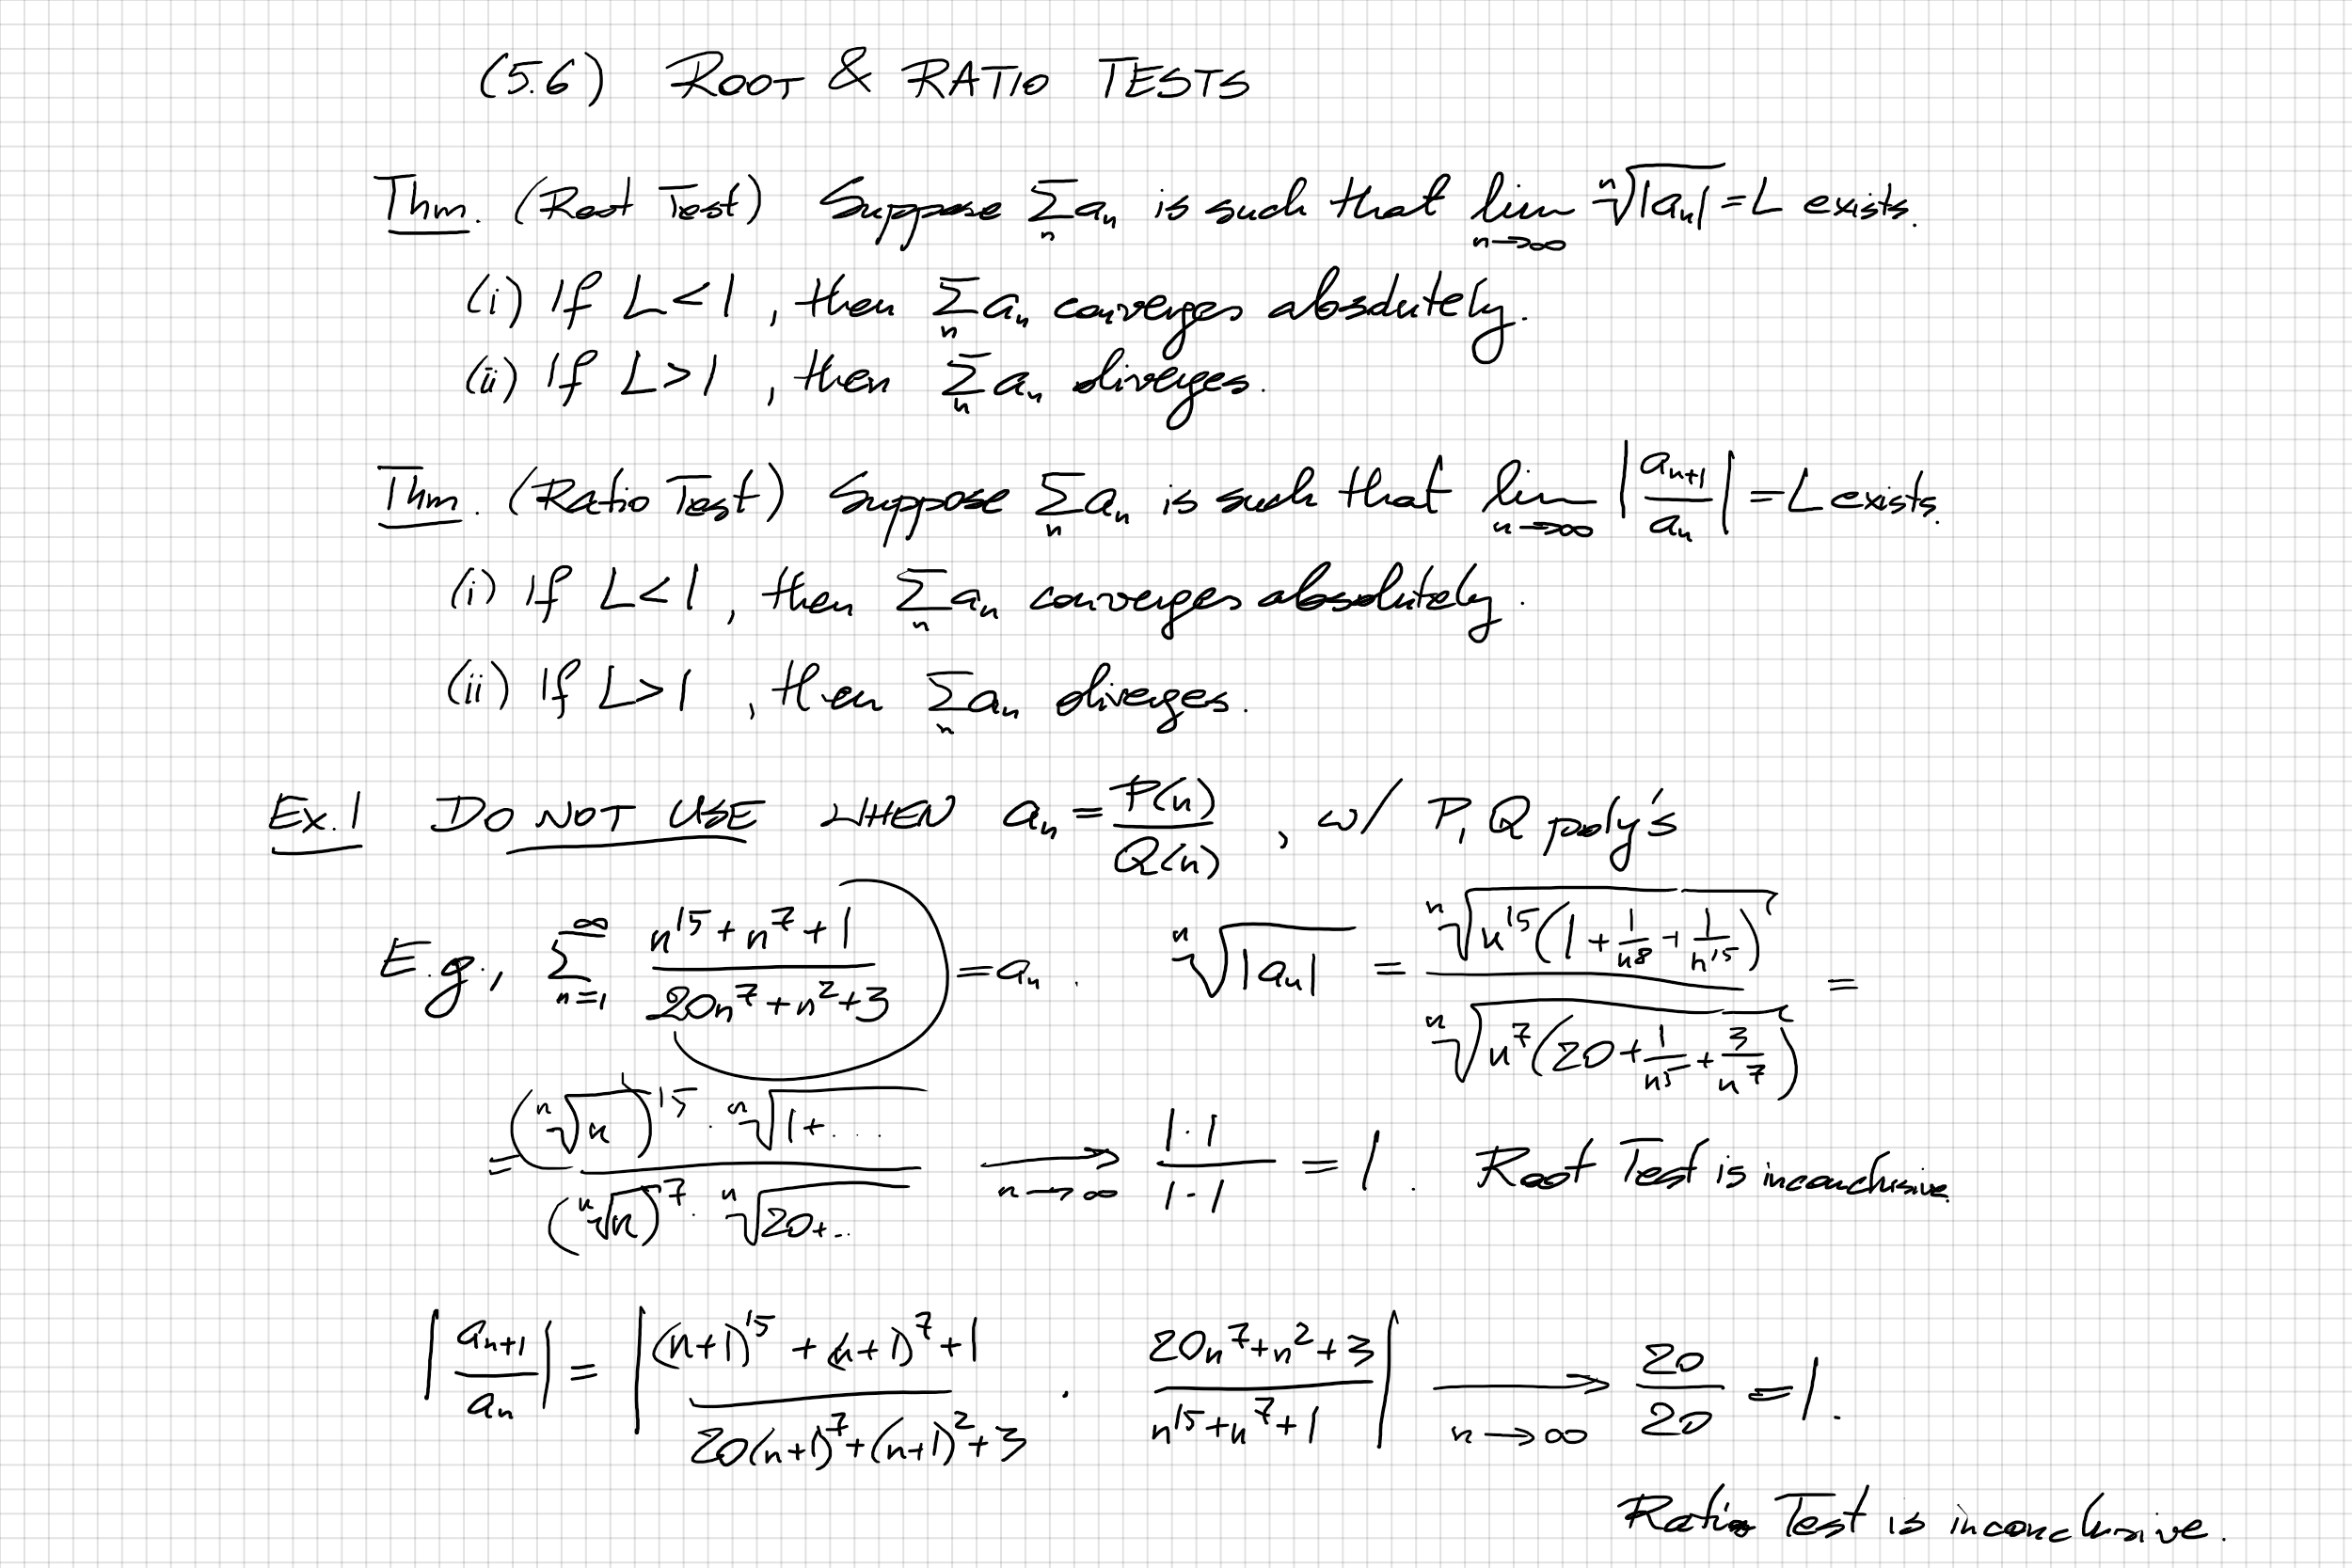 (5.6) ROOT & RATIO TESTS
Thm. (Root Test) Suppose ∑_n a_n is such that lim_{n→∞} ⁿ√|a_n| = L exists.
(i) If L < 1, then ∑_n a_n converges absolutely.
(ii) If L > 1, then ∑_n a_n diverges.
Thm. (Ratio Test) Suppose ∑_n a_n is such that lim_{n→∞} |a_{n+1}/a_n| = L exists.
(i) If L < 1, then ∑_n a_n converges absolutely.
(ii) If L > 1, then ∑_n a_n diverges.
Ex. 1 DO NOT USE WHEN a_n = P(n)/Q(n), w/ P, Q poly's
E.g., ∑_{n=1}^∞ (n^15 + n^7 + 1)/(20n^7 + n^2 + 3) = a_n. ⁿ√|a_n| = ⁿ√(n^15(1 + 1/n^8 + 1/n^15)) / ⁿ√(n^7(20 + 1/n^5 + 3/n^7)) =
= ((ⁿ√n)^15 · ⁿ√(1+....)) / ((ⁿ√n)^7 · ⁿ√(20+..)) →_{n→∞} (1·1)/(1·1) = 1. Root Test is inconclusive.
|a_{n+1}/a_n| = |((n+1)^15 + (n+1)^7 + 1)/(20(n+1)^7 + (n+1)^2 + 3) · (20n^7 + n^2 + 3)/(n^15 + n^7 + 1)| →_{n→∞} 20/20 = 1.
Ratio Test is inconclusive.